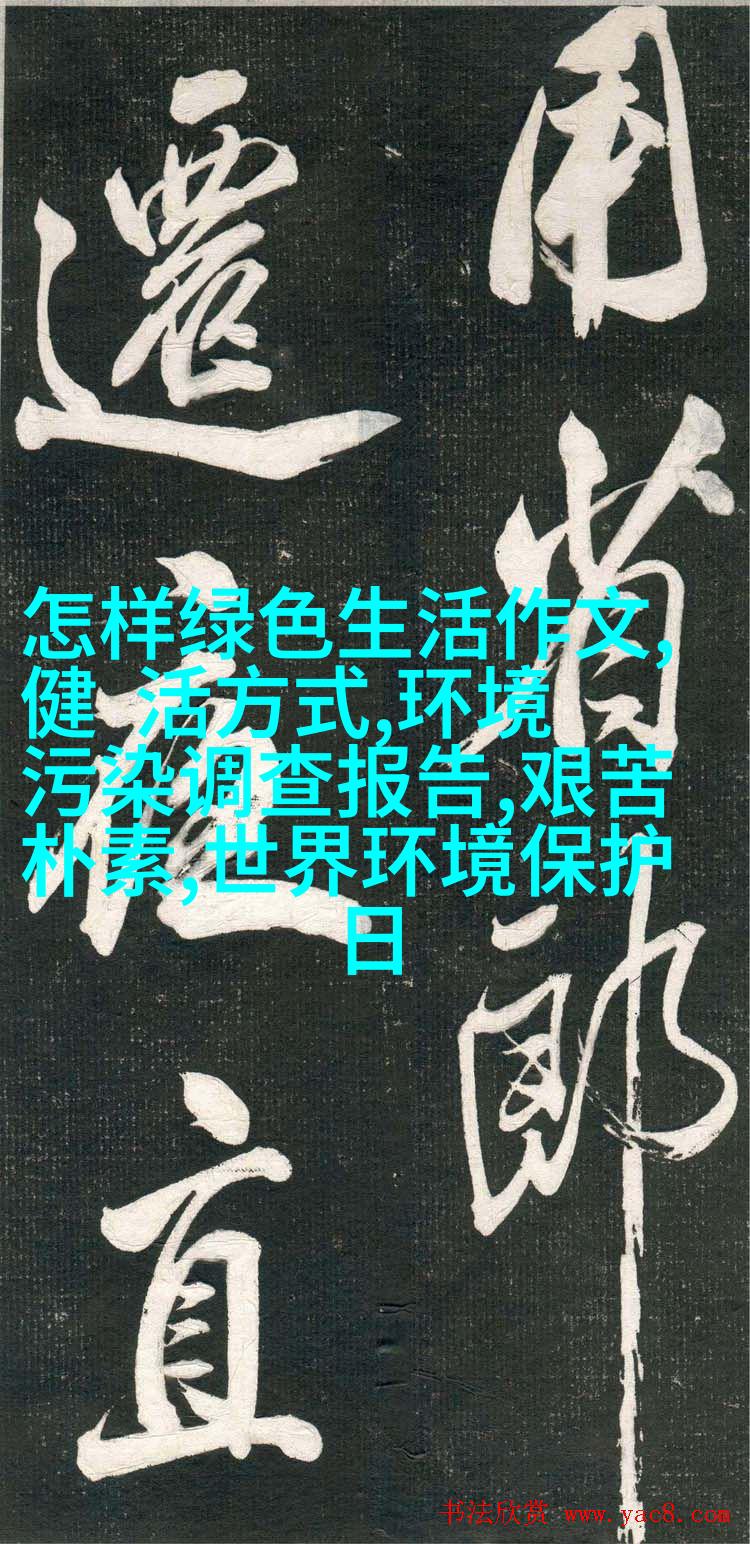 用省郎
直
怎样绿色生活作文,
健 活方式,环境
污染调查报告,艰苦
朴素,世界环境保护
日
书法欣赏 www.yac8.com